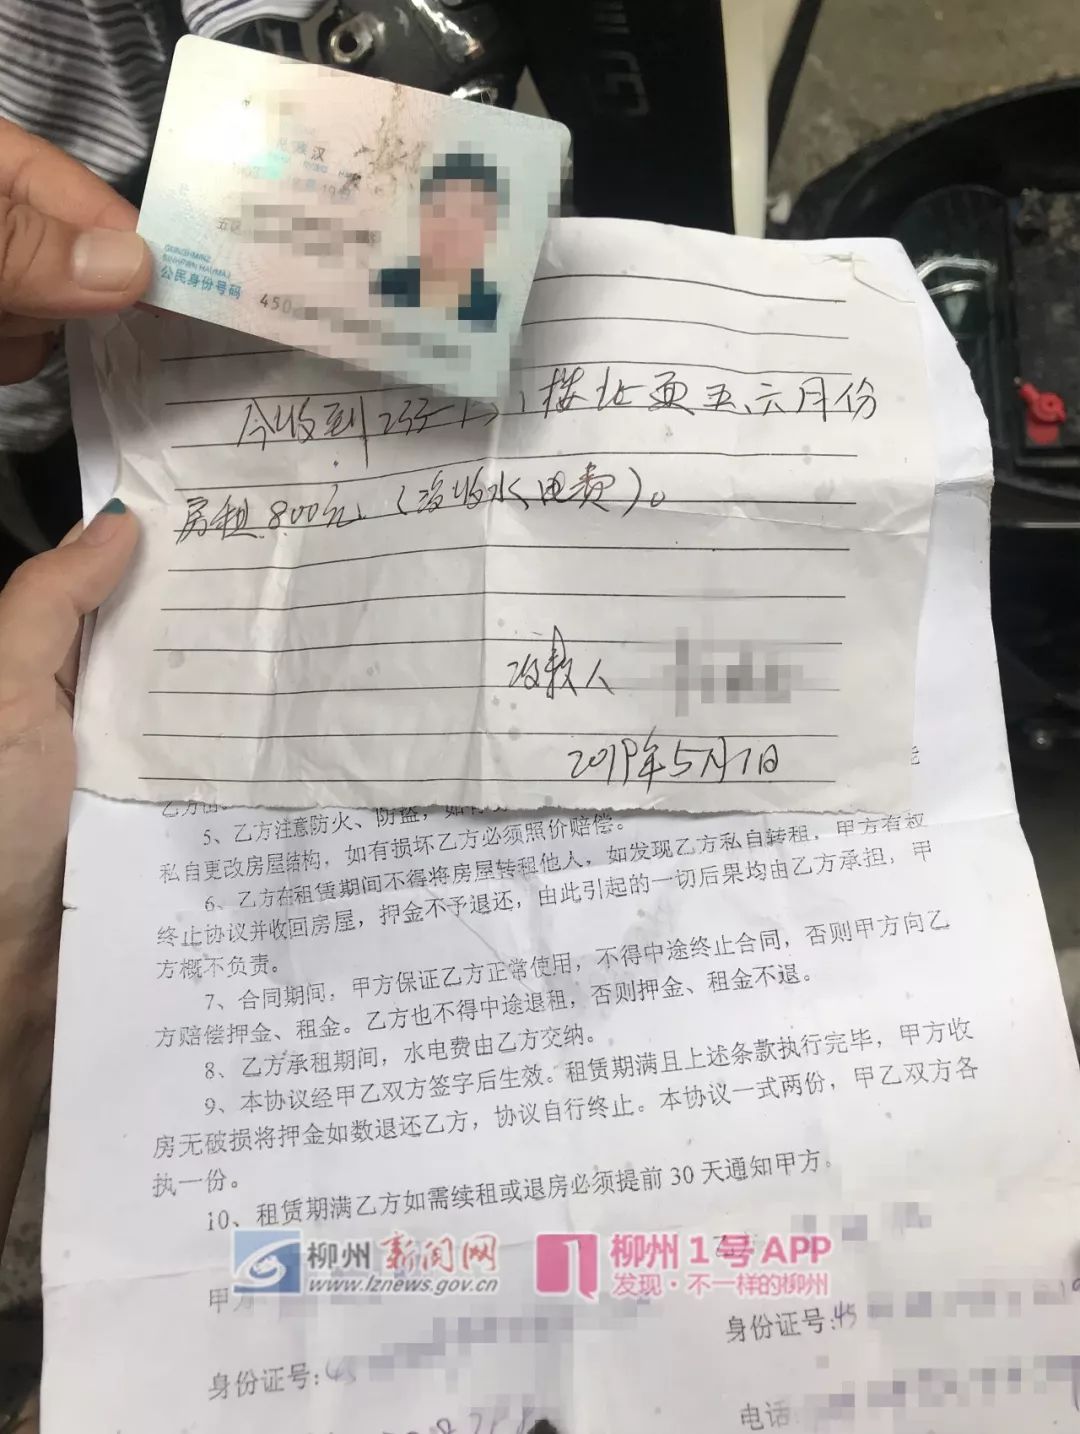 汉
五区
GUNGHMINZ
SINHFWN HAUMAJ
公民身份号码
450
今收到
楼北面五、六月份
房租800元（没收水、电费）。
收款人
2019年5月1日
乙方
5、乙方注意防火、防盗，如有
私自更改房屋结构，如有损坏乙方必须照价赔偿。
6、乙方在租赁期间不得将房屋转租他人，如发现乙方私自转租，甲方有权
终止协议并收回房屋，押金不予退还，由此引起的一切后果均由乙方承担，甲
方概不负责。
7、合同期间，甲方保证乙方正常使用，不得中途终止合同，否则甲方向乙
方赔偿押金、租金。乙方也不得中途退租，否则押金、租金不退。
8、乙方承租期间，水电费由乙方交纳。
9、本协议经甲乙双方签字后生效。租赁期满且上述条款执行完毕，甲方收
房无破损将押金如数退还乙方，协议自行终止。本协议一式两份，甲乙双方各
执一份。
10、租赁期满乙方如需续租或退房必须提前 30 天通知甲方。
柳州新闻网
www.lznews.gov.cn
柳州1号APP
发现·不一样的柳州
甲方
乙
身份证号:45
身份证号:45
电话: